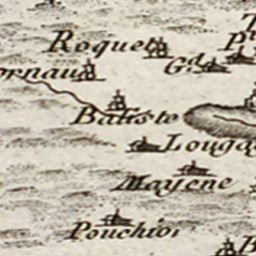 Roquet
Gd
ornau
Batiste
Louga
Mayene
Pouchio